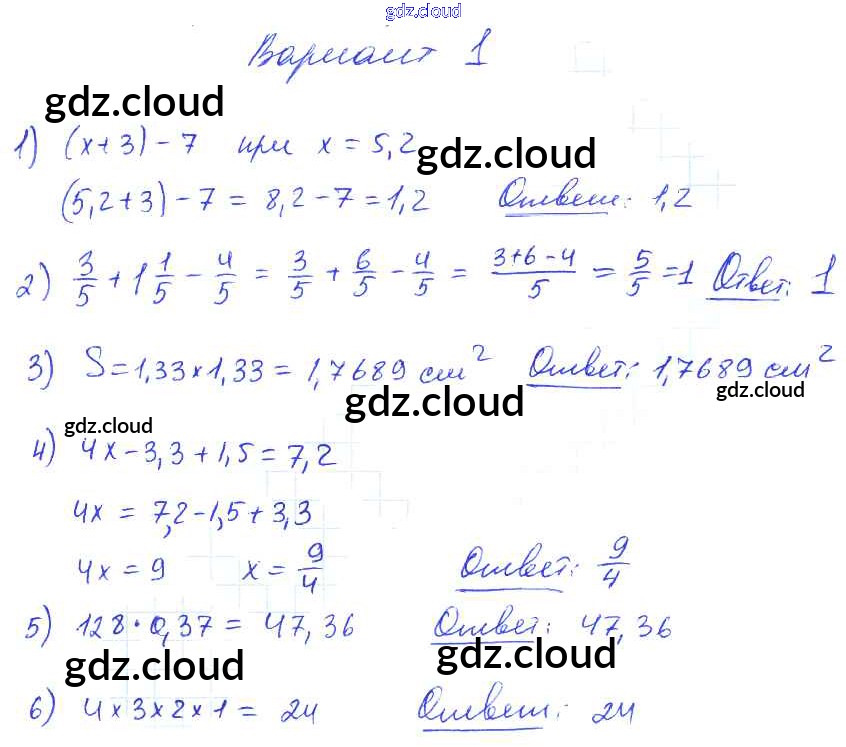 gdz.cloud
Вариант 1
gdz.cloud
1) (x+3)-7 при x = 5,2
gdz.cloud
(5,2+3)-7 = 8,2-7 = 1,2 Ответ: 1,2
2) 3/5 + 1 1/5 - 4/5 = 3/5 + 6/5 - 4/5 = (3+6-4)/5 = 5/5 = 1 Ответ: 1
3) S = 1,33 x 1,33 = 1,7689 см² Ответ: 1,7689 см²
gdz.cloud
gdz.cloud
gdz.cloud
4) 4x - 3,3 + 1,5 = 7,2
4x = 7,2 - 1,5 + 3,3
4x = 9 x = 9/4 Ответ: 9/4
5) 128 · 0,37 = 47,36 Ответ: 47,36
gdz.cloud
gdz.cloud
6) 4 x 3 x 2 x 1 = 24 Ответ: 24